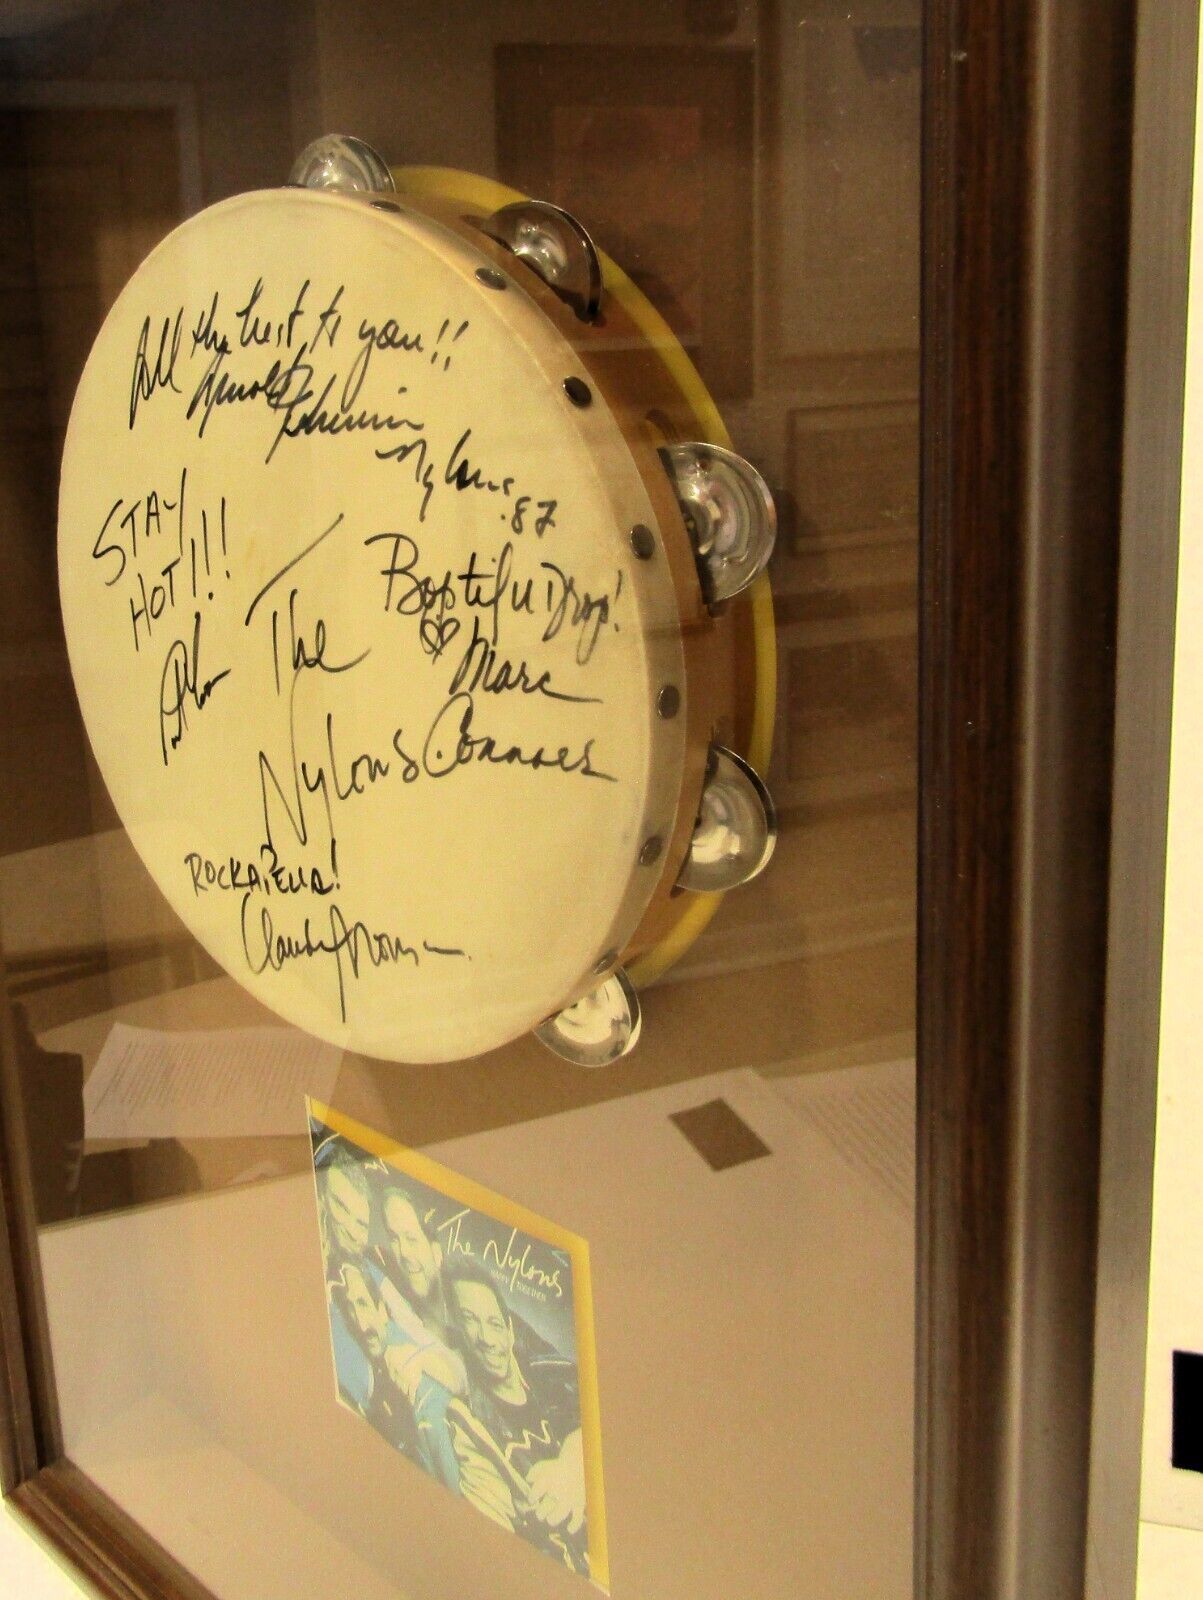 All the best to you!!
Arnold Robinson
Nylons
.87
STAY
HOT!!!
Bop til u Drop!
Marc
Connors
The
Nylons
ROCKAPELLA!
Claude Morrison
The Nylons
HAPPY TOGETHER